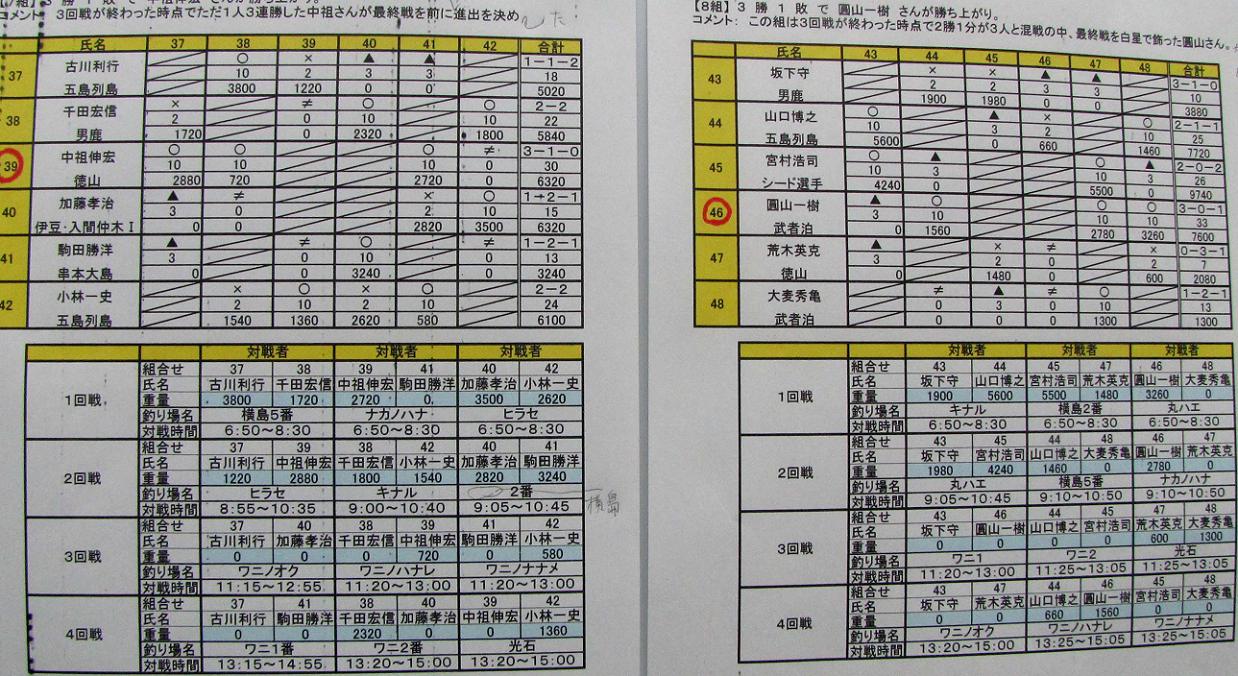 コメント 3回戦が終わった時点でただ1人3連勝した中祖さんが最終戦を前に進出を決め
した
氏名 37 38 39 40 41 42 合計
37 古川利行 ○ × ▲ ▲ 1-1-2
10 2 3 3 18
五島列島 3800 1220 0 0 5020
38 千田宏信 × ≠ ○ ○ 2-2
2 0 10 10 22
男鹿 1720 0 2320 1800 5840
39 中祖伸宏 ○ ○ ○ ≠ 3-1-0
10 10 10 0 30
徳山 2880 720 2720 0 6320
40 加藤孝治 ▲ ≠ × ○ 1-2-1
3 0 2 10 15
伊豆・入間仲木Ⅰ 0 0 2820 3500 6320
41 駒田勝洋 ▲ ≠ ○ ≠ 1-2-1
3 0 10 0 13
串本大島 0 0 3240 0 3240
42 小林一史 × ○ × ○ 2-2
2 10 2 10 24
五島列島 1540 1360 2620 580 6100
対戦者 対戦者 対戦者
1回戦 組合せ 37 38 39 41 40 42
氏名 古川利行 千田宏信 中祖伸宏 駒田勝洋 加藤孝治 小林一史
重量 3800 1720 2720 0 3500 2620
釣り場名 横島5番 ナカノハナ ヒラセ
対戦時間 6:50～8:30 6:50～8:30 6:50～8:30
2回戦 組合せ 37 39 38 42 40 41
氏名 古川利行 中祖伸宏 千田宏信 小林一史 加藤孝治 駒田勝洋
重量 1220 2880 1800 1540 2820 3240
釣り場名 ヒラセ キナル 2番
対戦時間 8:55～10:35 9:00～10:40 9:05～10:45
3回戦 組合せ 37 40 38 39 41 42
氏名 古川利行 加藤孝治 千田宏信 中祖伸宏 駒田勝洋 小林一史
重量 0 0 0 720 0 580
釣り場名 ワニノオク ワニノハナレ ワニノナナメ
対戦時間 11:15～12:55 11:20～13:00 11:20～13:00
4回戦 組合せ 37 41 38 40 39 42
氏名 古川利行 駒田勝洋 千田宏信 加藤孝治 中祖伸宏 小林一史
重量 0 0 2320 0 0 1360
釣り場名 ワニ1番 ワニ2番 光石
対戦時間 13:15～14:55 13:20～15:00 13:20～15:00
【8組】3 勝 1 敗 で 圓山一樹 さんが勝ち上がり。
コメント: この組は3回戦が終わった時点で2勝1分が3人と混戦の中、最終戦を白星で飾った圓山さん。
氏名 43 44 45 46 47 48 合計
43 坂下守 × × ▲ ▲ 3-1-0
2 2 3 3 10
男鹿 1900 1980 0 0 3880
44 山口博之 ○ ▲ × ○ 2-1-1
10 3 2 10 25
五島列島 5600 0 660 1460 7720
45 宮村浩司 ○ ▲ ○ ▲ 2-0-2
10 3 10 3 26
シード選手 4240 0 5500 0 9740
46 圓山一樹 ▲ ○ ○ ○ 3-0-1
3 10 10 10 33
武者泊 0 1560 2780 3260 7600
47 荒木英克 ▲ × ≠ × 0-3-1
3 2 0 2 7
徳山 0 1480 0 600 2080
48 大麦秀亀 ≠ ▲ ≠ ○ 1-2-1
0 3 0 10 13
武者泊 0 0 0 1300 1300
対戦者 対戦者 対戦者
1回戦 組合せ 43 44 45 47 46 48
氏名 坂下守 山口博之 宮村浩司 荒木英克 圓山一樹 大麦秀亀
重量 1900 5600 5500 1480 3260 0
釣り場名 キナル 横島2番 丸ハエ
対戦時間 6:50～8:30 6:50～8:30 6:50～8:30
2回戦 組合せ 43 45 44 48 46 47
氏名 坂下守 宮村浩司 山口博之 大麦秀亀 圓山一樹 荒木英克
重量 1980 4240 1460 0 2780 0
釣り場名 丸ハエ 横島5番 ナカノハナ
対戦時間 9:05～10:45 9:10～10:50 9:10～10:50
3回戦 組合せ 43 46 44 45 47 48
氏名 坂下守 圓山一樹 山口博之 宮村浩司 荒木英克 大麦秀亀
重量 0 0 0 0 600 1300
釣り場名 ワニ1 ワニ2 光石
対戦時間 11:20～13:00 11:25～13:05 11:25～13:05
4回戦 組合せ 43 47 44 46 45 48
氏名 坂下守 荒木英克 山口博之 圓山一樹 宮村浩司 大麦秀亀
重量 0 0 660 1560 0 0
釣り場名 ワニノオク ワニノハナレ ワニノナナメ
対戦時間 13:20～15:00 13:25～15:05 13:25～15:05